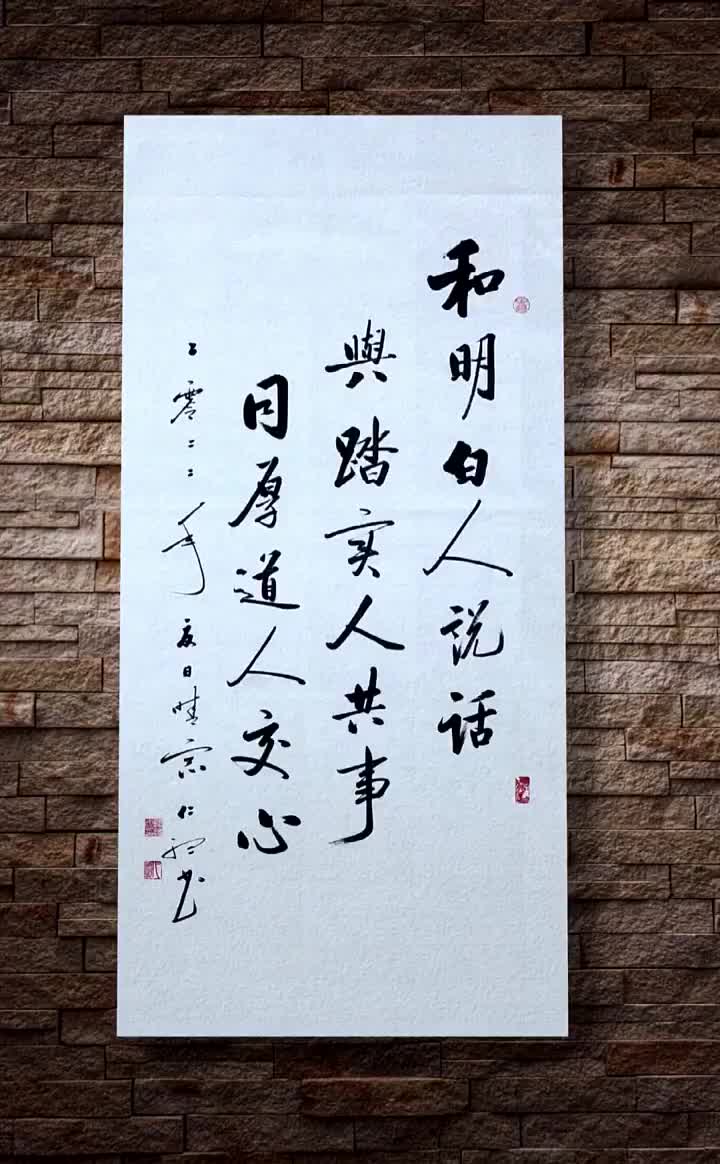 和明白人说话
與踏实人共事
同厚道人交心
二零二二年夏日晴宗仁书